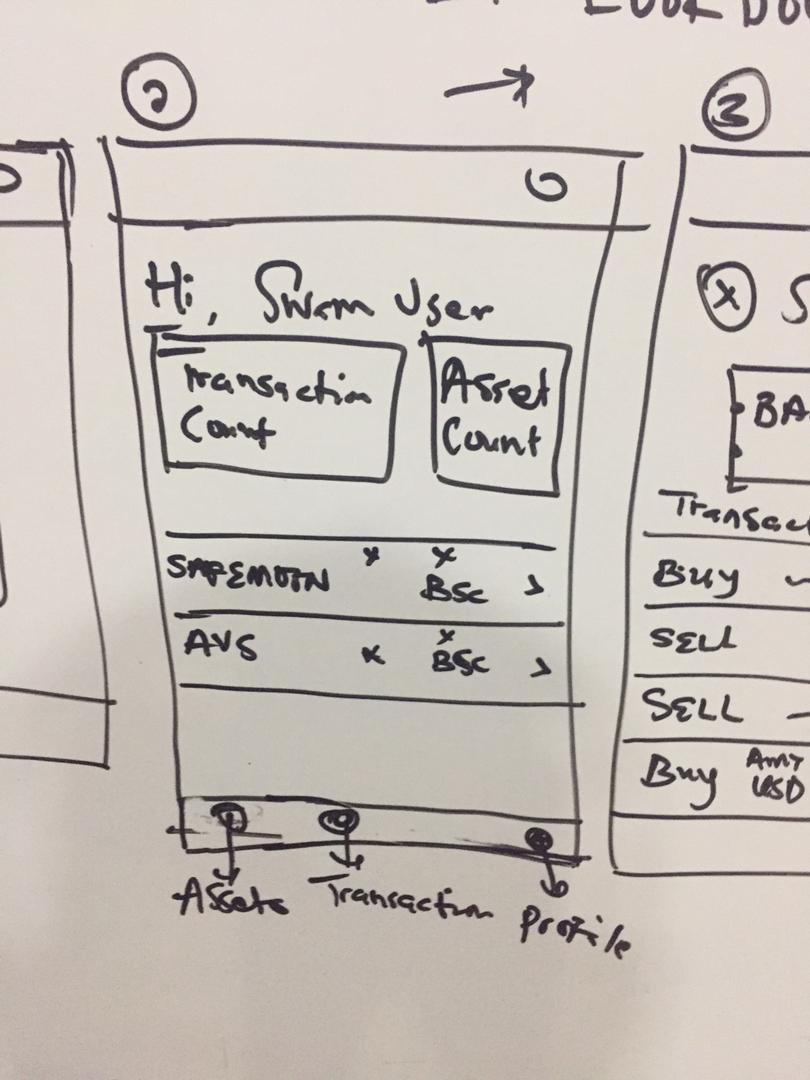 LOOK DO
2
3
Hi, Swam User
Transaction
Count
Asset
Count
SAFEMOON x x BSC >
AVS x x BSC >
Assets Transaction Profile
x S
BA
Transact
Buy
SELL
SELL
Buy AMT
USD